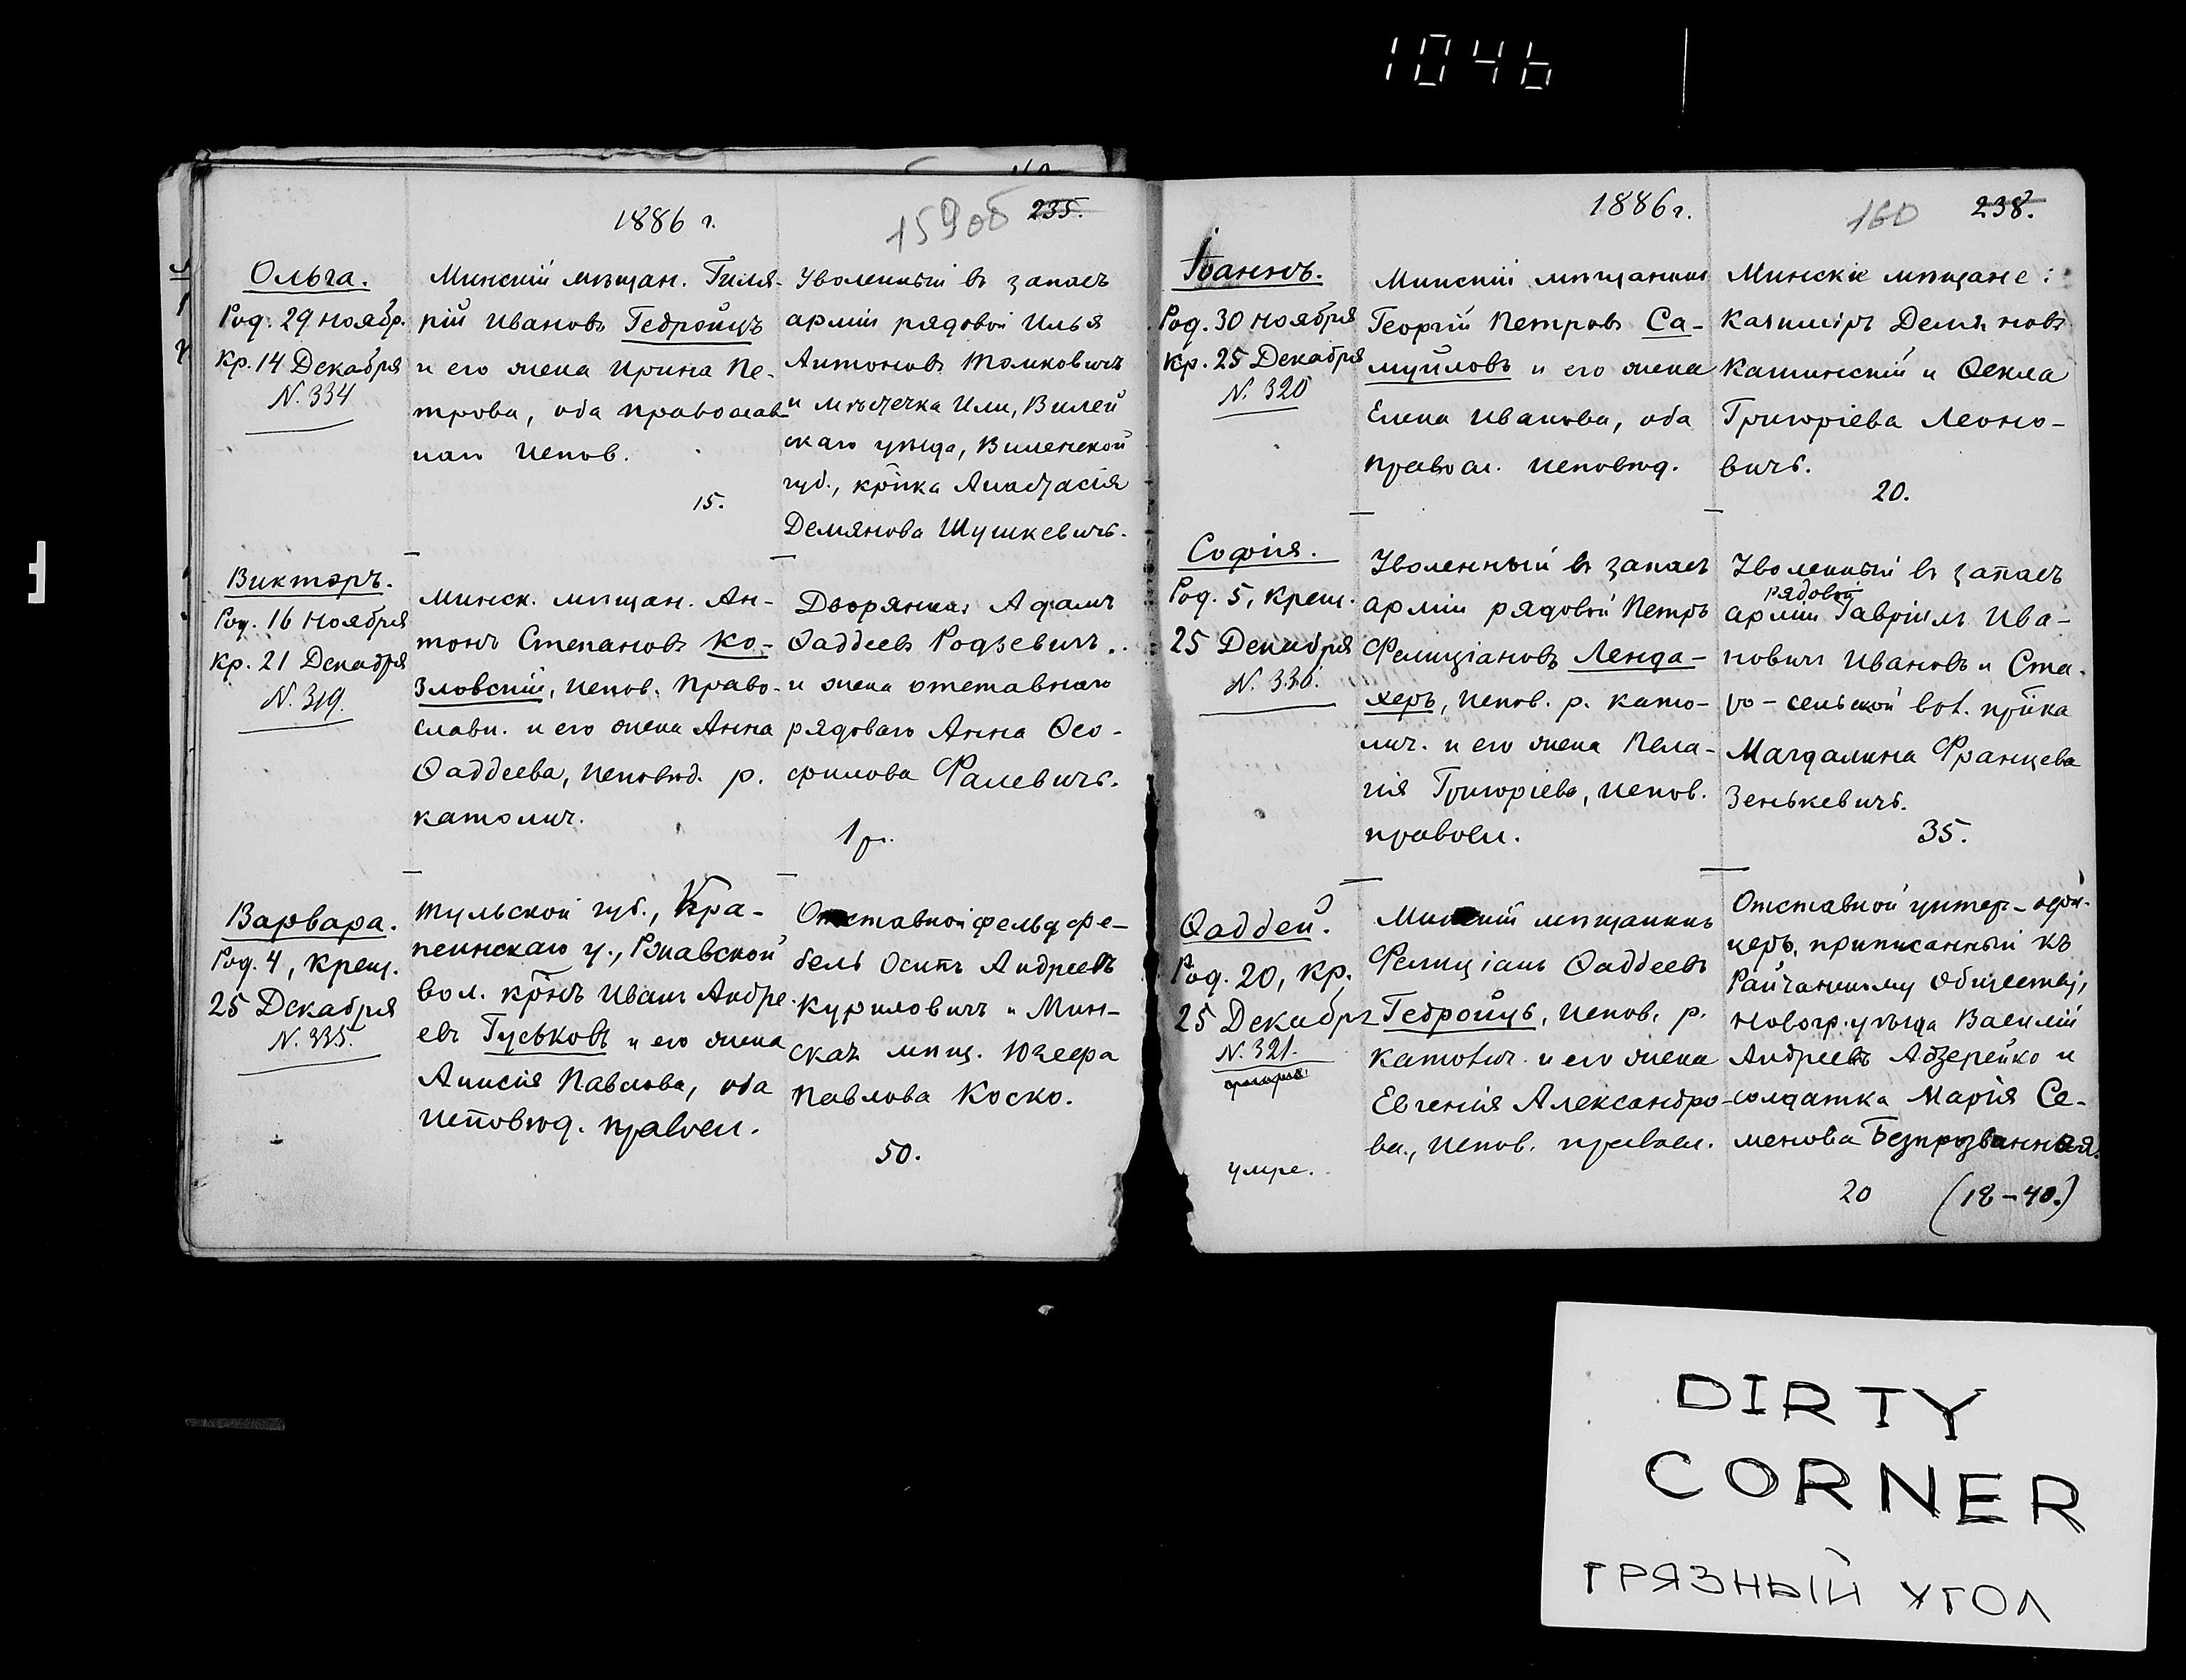 1046
1886 г.
159об 235.
Ольга.
Род. 29 Ноябр.
Кр. 14 Декабря
N. 334
Минскій мѣщан. Гиля-
рій Ивановъ Гедройцъ
и его жена Ирина Пе-
трова, оба православ-
наго испов.
15.
Уволенный въ запасъ
арміи рядовой Илья
Антоновъ Томковичъ
и мѣстечка Или, Вилей
скаго уѣзда, Виленской
губ., кр̃нка Анастасія
Демянова Шушкевичъ.
Викторъ.
Род. 16 Ноября
Кр. 21 Декабря
N. 319.
Минск. мѣщан. Ан-
тонъ Степановъ Ко-
зловскій, испов. право-
славн. и его жена Анна
Ѳаддеева, исповѣд. р.
католич.
Дворянинъ Адамъ
Ѳаддеевъ Родзевичъ
и жена отставного
рядоваго Анна Ѳео-
филова Фалевичъ.
1 р.
Варвара.
Род. 4, крещ.
25 Декабря
N. 335.
Тульской губ., Кра-
пеинскаго у., Ржавской
вол. кр̃нъ Иванъ Андре-
евъ Гуськовъ и его жена
Анисія Павлова, оба
исповѣд. правосл.
Отставной фельдфе-
бель Осипъ Андреевъ
Куриловичъ и Мин-
ская мѣщ. Юзефа
Павлова Коско.
50.
1886 г.
160 238.
Іоаннъ.
Род. 30 Ноября
Кр. 25 Декабря
N. 320
Минскій мѣщанинъ
Георгій Петровъ Са-
муйловъ и его жена
Елена Иванова, оба
правосл. исповѣд.
Минскіе мѣщане:
Казиміръ Демяновъ
Каминскій и Ѳекла
Григоріева Леоно-
вичъ.
20.
Софія.
Род. 5, крещ.
25 Декабря
N. 336.
Уволенный въ запасъ
арміи рядовой Петръ
Фелиціановъ Ленда-
херъ, испов. р. като-
лич. и его жена Пела-
гія Григоріева, испов.
правосл.
Уволенный въ запасъ
рядовой
арміи Гавріилъ Ива-
новичъ Ивановъ и Ста-
ро-сельской вол. кр̃нка
Магдалина Францева
Зенькевичъ.
35.
Ѳаддей.
Род. 20, Кр.
25 Декабря
N. 321.
умре.
Минскій мѣщанинъ
Фелиціанъ Ѳаддеевъ
Гедройцъ, испов. р.
католич. и его жена
Евгенія Александро-
ва, испов. правосл.
Отставной унтер-офи-
церъ, приписанный къ
Райчанскому обществу,
Новогр. уѣзда Василій
Андреевъ Абзерейко и
солдатка Марія Се-
менова Безпрозванная.
20 (18-40.)
DIRTY
CORNER
ГРЯЗНЫЙ УГОЛ